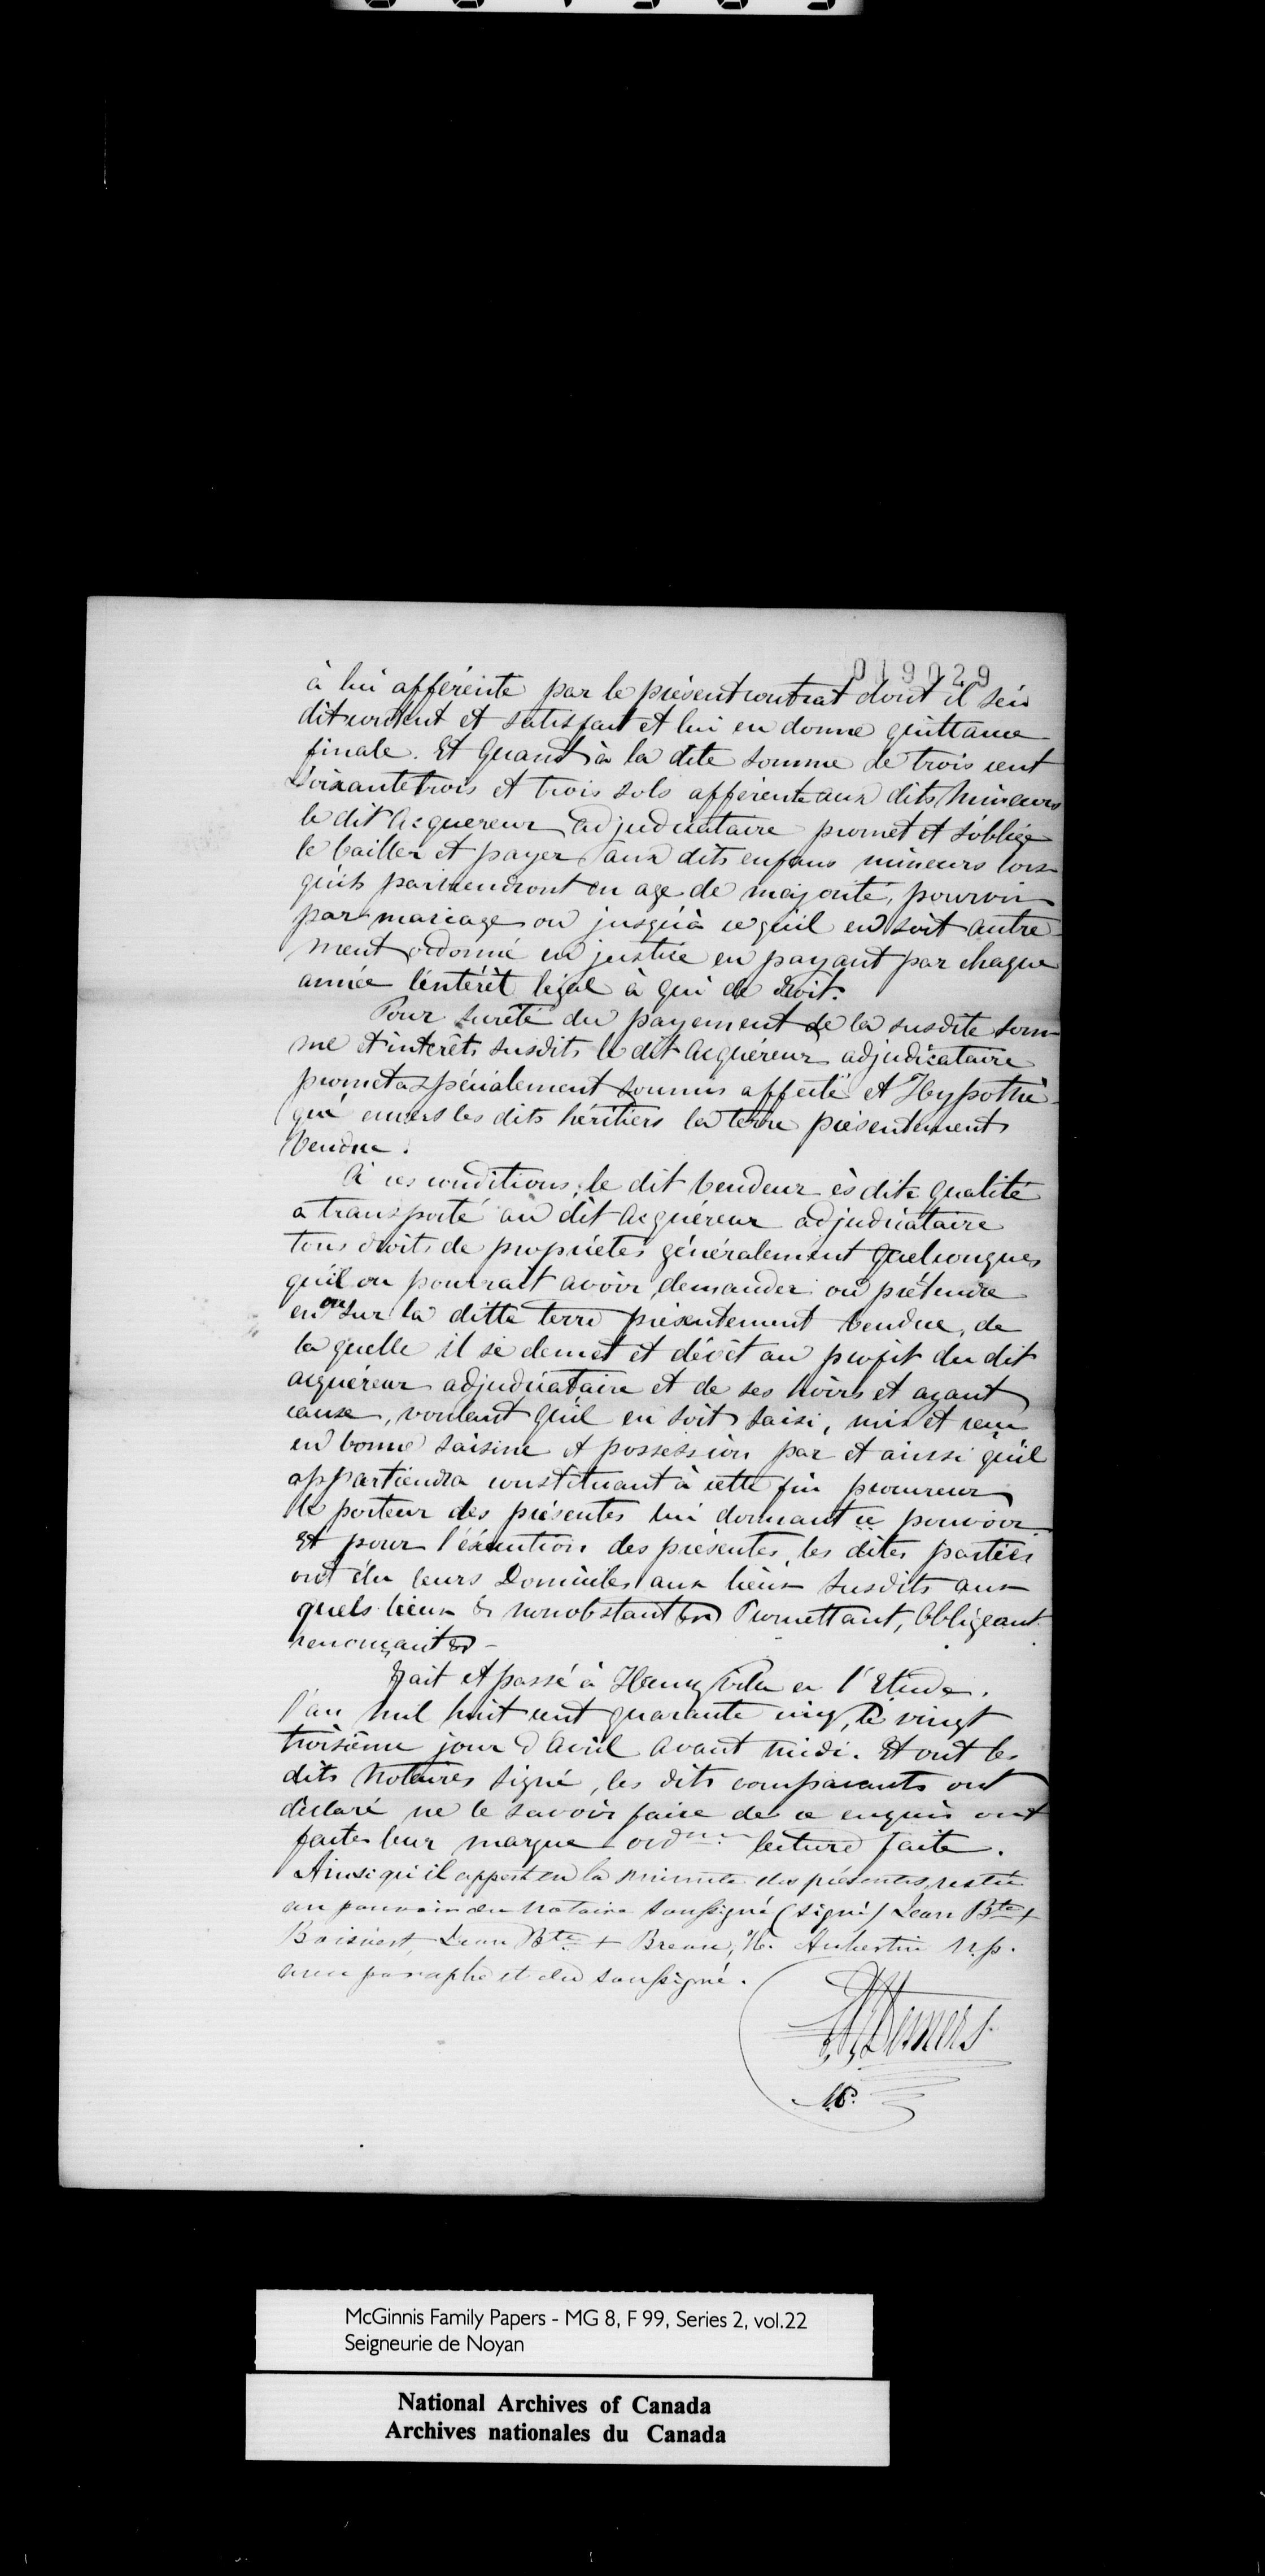 019029
à lui afférente par le présent contrat dont il s'en
dit content et satisfait et lui en donne quittance
finale. Et Quant à la dite somme de trois cent
Soixante trois et trois sols afférente aux dits mineurs
le dit Acquereur adjudicataire promet et s'oblige
le bailler et payer aux dits enfans mineurs lors
qu'ils parviendront en age de majorité, pourvoir
par mariage ou jusqu'à ce qu'il en soit autre-
ment ordonné en justice en payant par chaque
année l'intérêt légal à qui de droit.
Pour sureté du payement de la susdite som-
me et intérêts susdits le dit Acquéreur adjudicataire
promet a spécialement soumis affecté et Hypothé-
qué envers les dits héritiers la terre présentement
Vendue.
A ces conditions, le dit Vendeur ès dite qualité
a transporté au dit Acquéreur adjudicataire
tous droits de propriétés généralement Quelconques
qu'il ou pourrait avoir, demander ou prétendre
en ou sur la ditte terre présentement vendue, de
la quelle il se demet et dévêt au profit du dit
acquéreur adjudicataire et de ses hoirs et ayant
cause, voulant qu'il en soit saisi, mis et reçu
en bonne saisine et possession par et ainsi qu'il
appartiendra constituant à cette fin procureur
le porteur des présentes lui donnant ce pouvoir
Et pour l'éxécution des présentes, les dites parties
ont élu leurs Domiciles aux lieux susdits aux
quels lieux & nonobstant &a Promettant, Obligeant
renonçant &a -
Fait et passé à Henry ville en l'Etude.
l'an mil huit cent quarante cinq, le vingt
troisième jour d'avril avant midi. Et ont les
dits Notaires signé, les dits comparants ont
déclaré ne le savoir faire de ce enquis ont
faite leur marque ordre lecture faite.
Ainsi qu'il appert en la minute des présentes, restée
au pouvoir du Notaire soussigné (signé) Jean Bte +
Boisvert, Jean Bte + Breau, Aubertin N.p.
avec paraphe et du soussigné.
Demers
N.P.
McGinnis Family Papers - MG 8, F 99, Series 2, vol.22
Seigneurie de Noyan
National Archives of Canada
Archives nationales du Canada